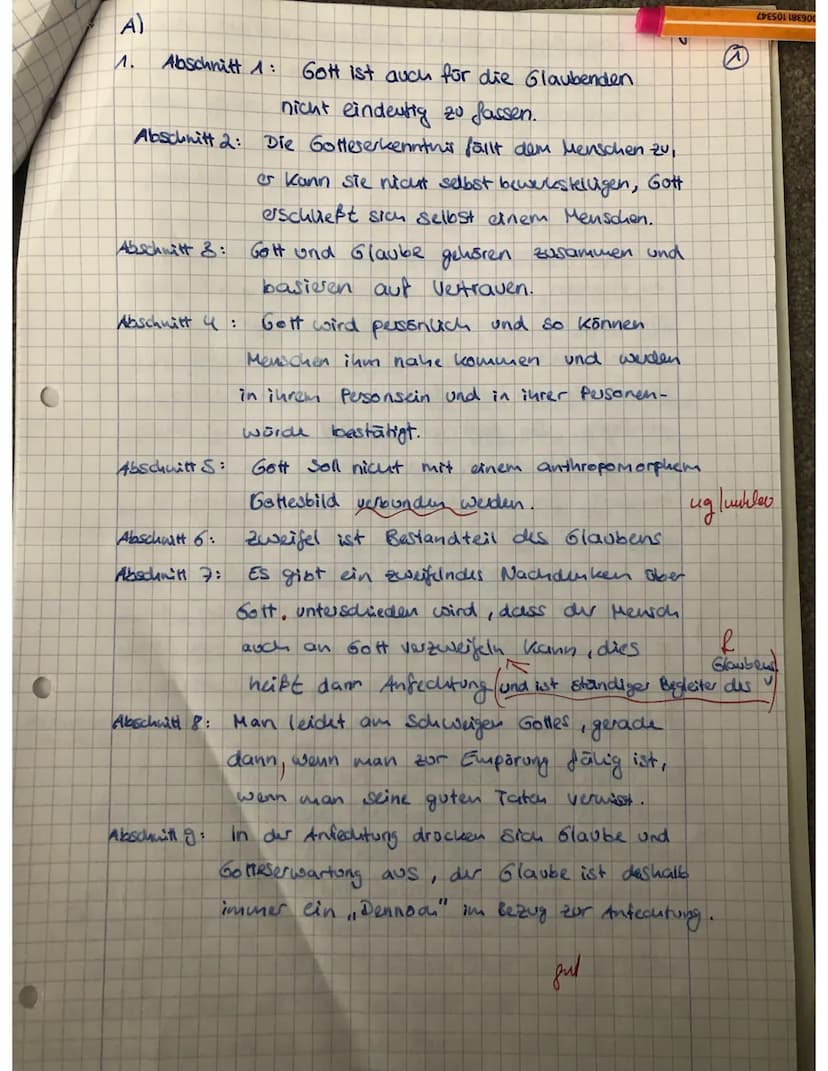 A)
①
1. Abschnitt 1: Gott ist auch für die Glaubenden
nicht eindeutig zu fassen.
Abschnitt 2: Die Gotteserkenntnis fällt dem Menschen zu,
er kann sie nicht selbst bewerkstelligen, Gott
erschließt sich selbst einem Menschen.
Abschnitt 3: Gott und Glaube gehören zusammen und
basieren auf Vertrauen.
Abschnitt 4: Gott wird persönlich und so können
Menschen ihm nahe kommen und werden
in ihrem Personsein und in ihrer Personen-
würde bestätigt.
Abschnitt 5: Gott soll nicht mit einem anthropomorphem
Gottesbild verbunden werden. ug/unklar
Abschnitt 6: Zweifel ist Bestandteil des Glaubens
Abschnitt 7: Es gibt ein zweifelndes Nachdenken über
Gott. unterschieden wird, dass der Mensch
auch an Gott verzweifeln kann, dies R
Glaubens
heißt dann Anfechtung (und ist ständiger Begleiter des
Abschnitt 8: Man leidet am Schweigen Gottes, gerade
dann, wenn man zur Empörung fähig ist,
wenn man seine guten Taten vermisst.
Abschnitt 9: In der Anfechtung drücken sich Glaube und
Gotteserwartung aus, der Glaube ist deshalb
immer ein „Dennoch" im Bezug zur Anfechtung.
gut